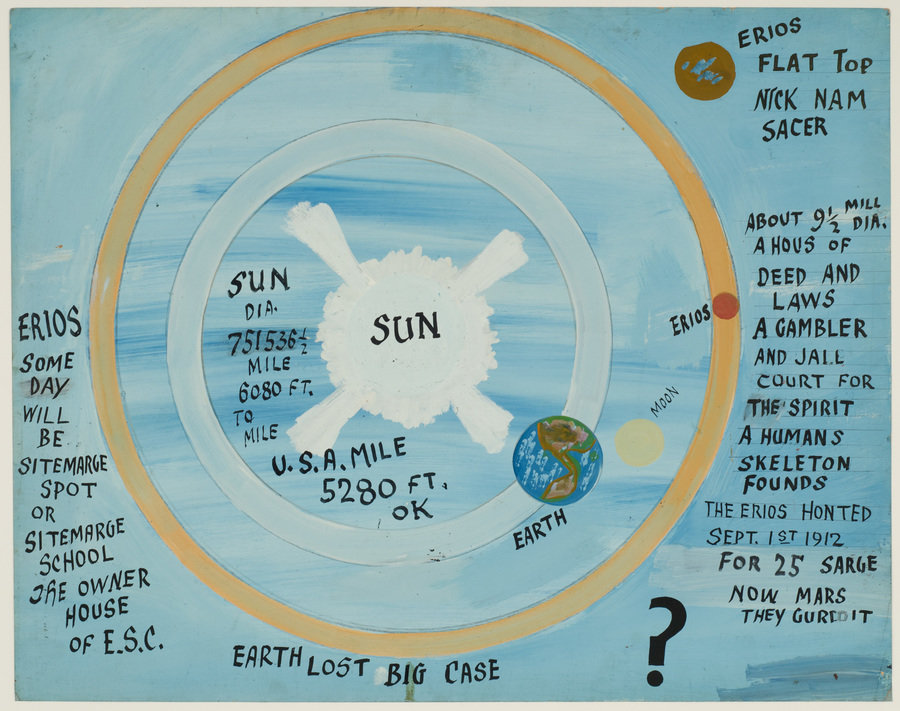 ERIOS
FLAT TOP
NICK NAM
SACER
ABOUT 9 1/2 MILL DIA.
A HOUS OF
DEED AND
LAWS
A GAMBLER
AND JAIL
COURT FOR
THE SPIRIT
A HUMANS
SKELETON
FOUNDS
THE ERIOS HONTED
SEPT. 1ST 1912
FOR 25 SARGE
NOW MARS
THEY
?
ERIOS
MOON
SUN
SUN
DIA.
751536 1/2
MILE
6080 FT.
TO
MILE
U.S.A. MILE
5280 FT.
OK
EARTH
ERIOS
SOME
DAY
WILL
BE
SITEMARGE
SPOT
OR
SITEMARGE
SCHOOL
THE OWNER
HOUSE
OF E.S.C.
EARTH LOST BIG CASE